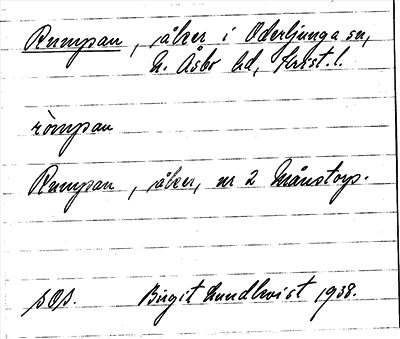 Rumpan, åker i Oderljunga sn,
N. Åsbo hd, Krist. l.
ròmpan
Rumpan, åker, nr 2 Månstorp.
SOS. Birgit Lundkvist 1938.